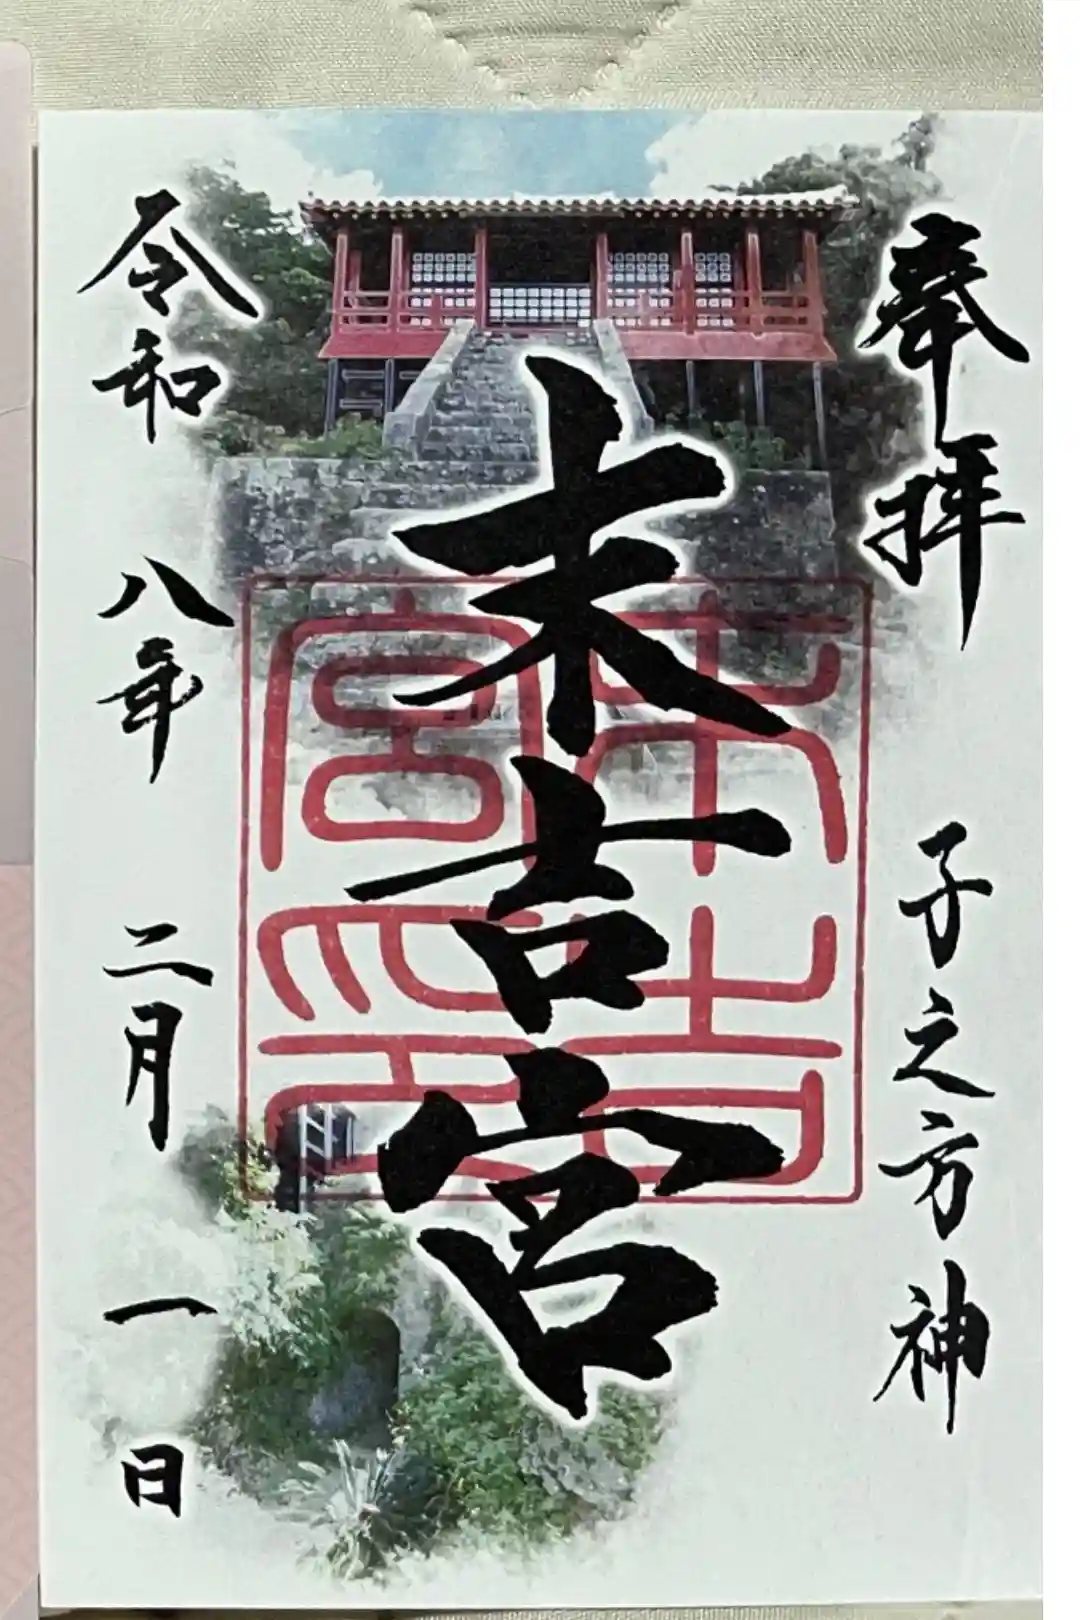 奉拝
子之方神
末吉宮
末吉宮印
令和八年二月一日